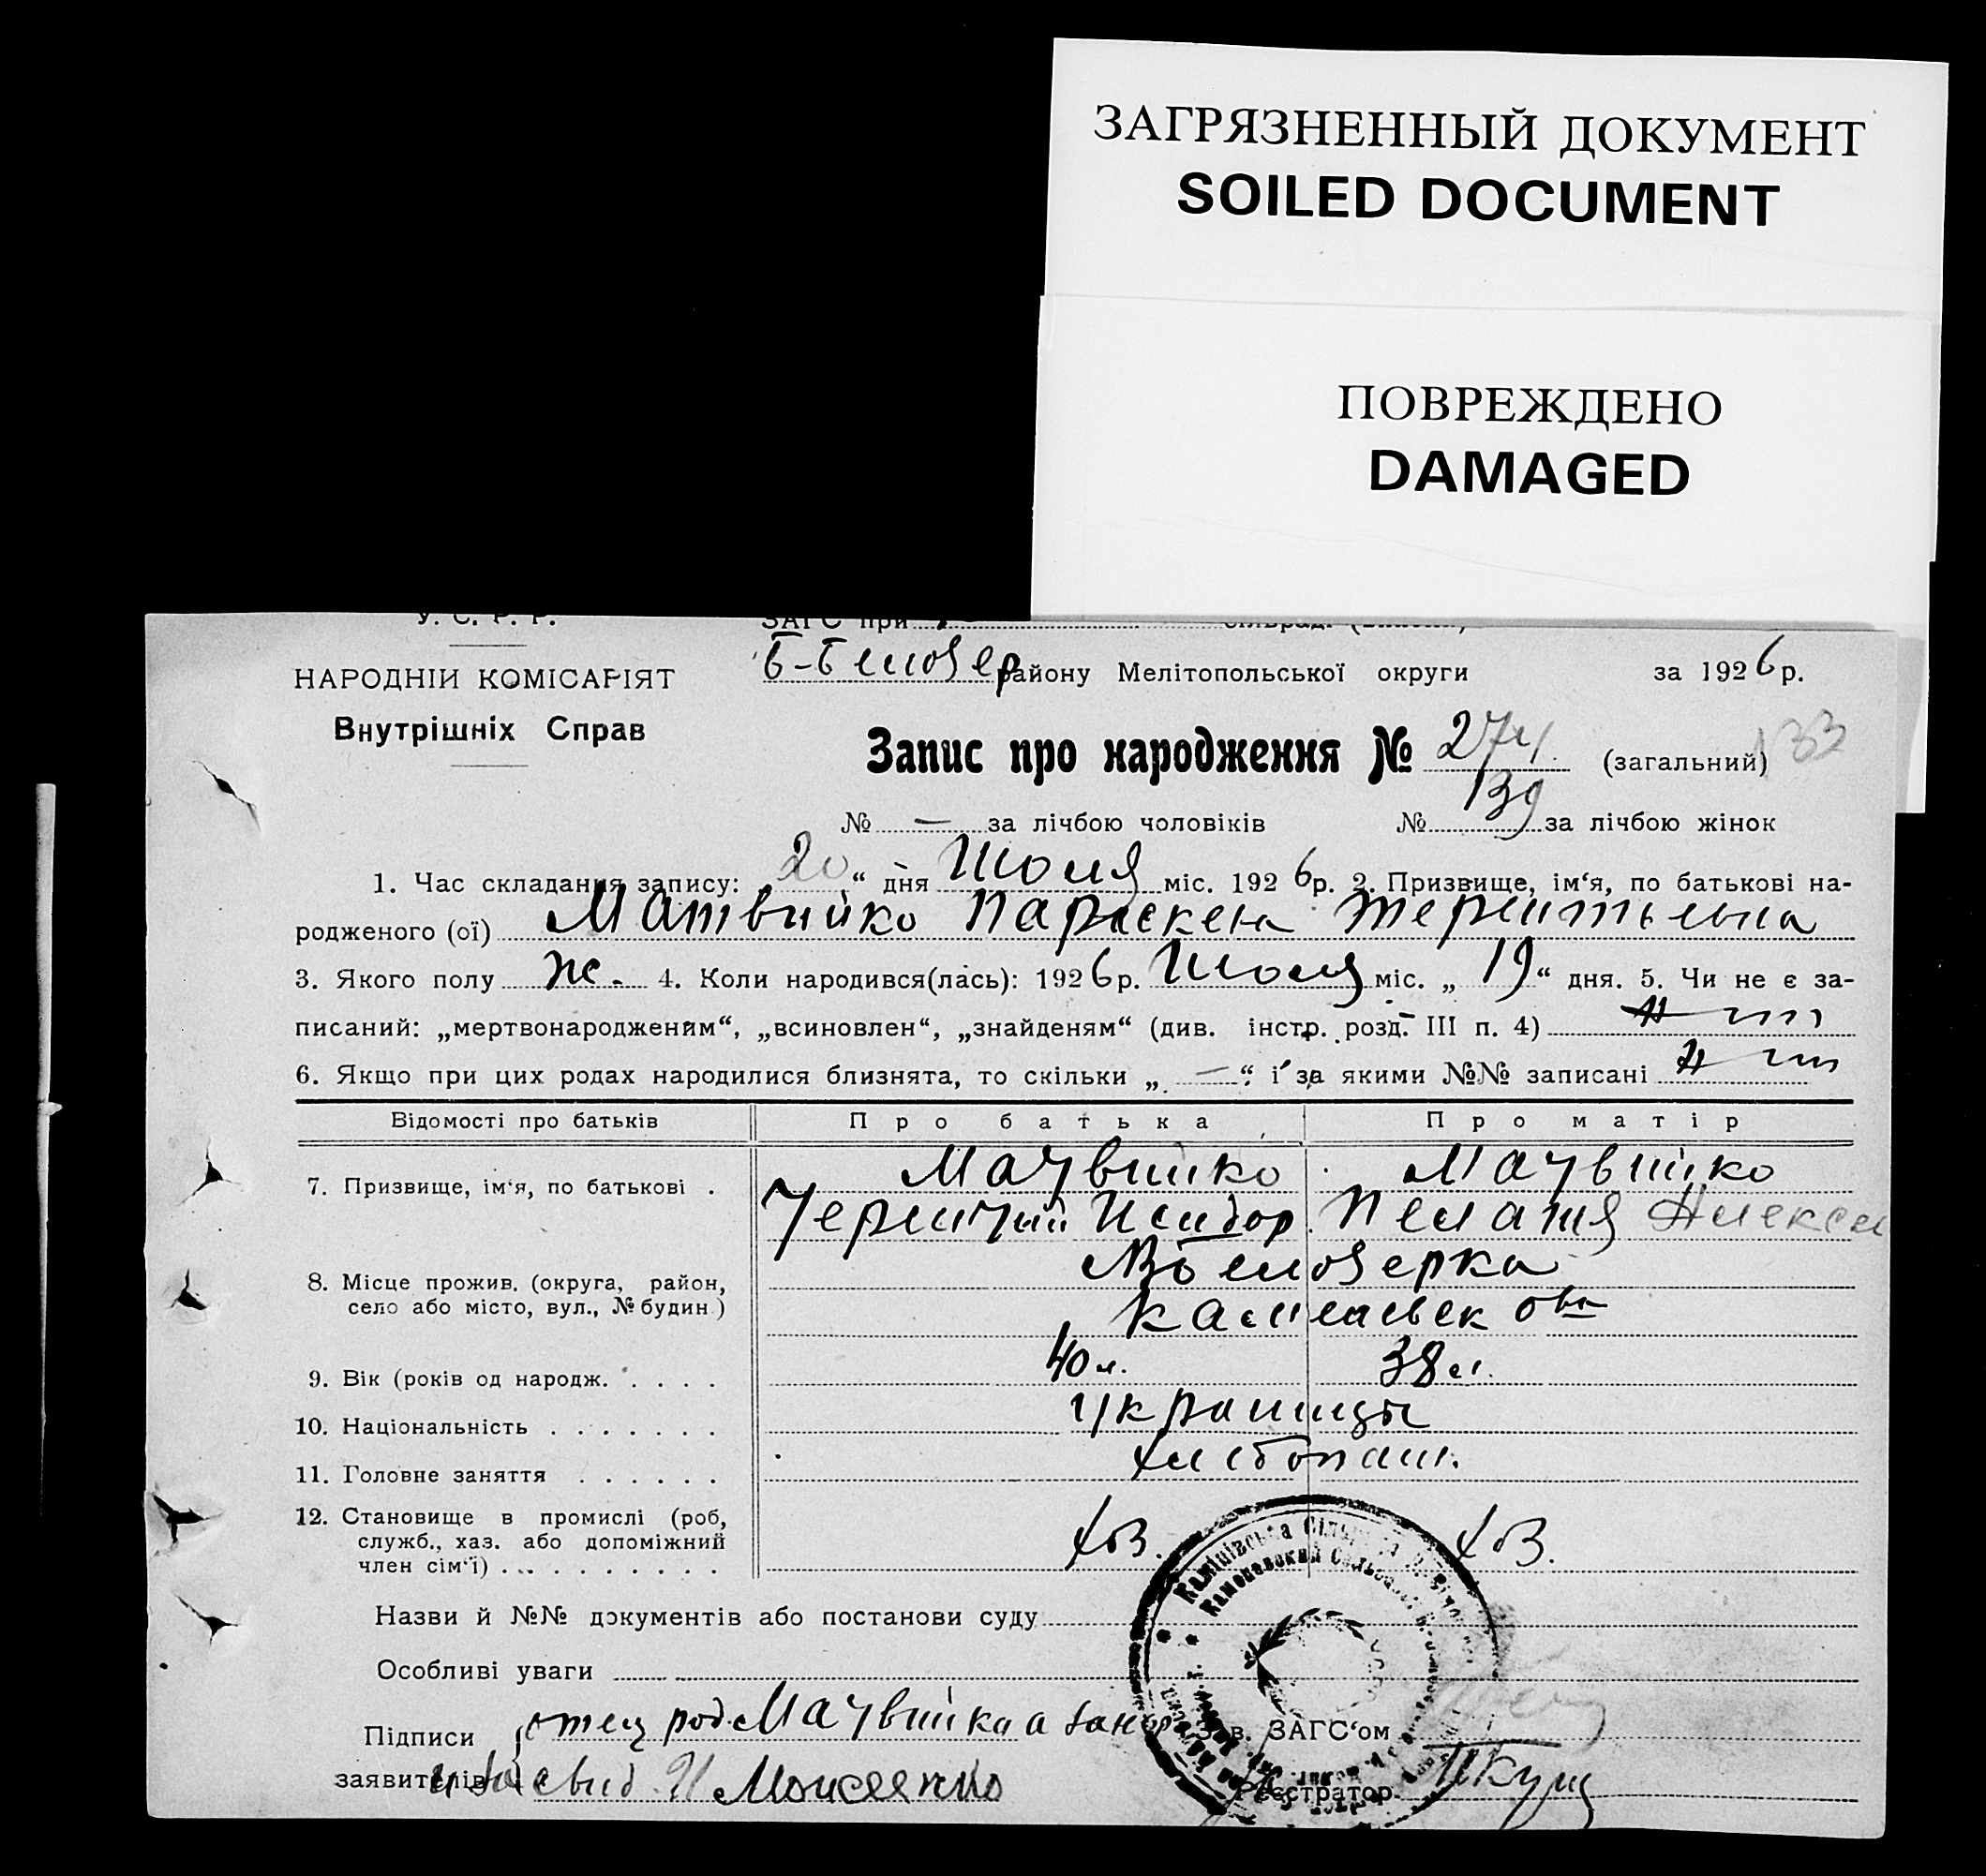 ЗАГРЯЗНЕННЫЙ ДОКУМЕНТ
SOILED DOCUMENT
ПОВРЕЖДЕНО
DAMAGED
У. С. Р. Р.
ЗАГС при
НАРОДНІЙ КОМІСАРІЯТ
Внутрішніх Справ
Б-Белозер району Мелітопольської округи за 1926 р.
Запис про народження № 274 (загальний) 133
№ — за лічбою чоловіків № 139 за лічбою жінок
1. Час складання запису: „20“ дня Июля міс. 1926 р. 2. Призвище, ім‘я, по батькові на-
родженого (ої) Матвийко Параскева Терентьевна
3. Якого полу ж. 4. Коли народився(лась): 1926 р. Июля міс. „19“ дня. 5. Чи не є за-
писаний: „мертвонародженим“, „всиновлен“, „знайденям“ (див. інстр. розд. III п. 4) нет
6. Якщо при цих родах народилися близнята, то скільки „—“ і за якими №№ записані нет
Відомості про батьків Про батька Про матір
7. Призвище, ім‘я, по батькові . Матвийко Матвийко
Терентий Исидор. Пелагия Алексе
8. Місце прожив. (округа, район, Белозерка
село або місто, вул., № будин.)
9. Вік (років од народж. . . . . 40 л. 38 л.
10. Національність . . . . . . . Украинцы
11. Головне заняття . . . . . . хлебопаш.
12. Становище в промислі (роб,
служб., хаз. або допоміжний хоз. хоз.
член сім‘ї) . . . . . . . . . .
Назви й №№ документів або постанови суду
Особливі уваги
Підписи отец род. Матвийко а занегр Зав. ЗАГС‘ом
заявителів Моисеенко Реєстратор
Камінівська
Каменовский Сельсовет